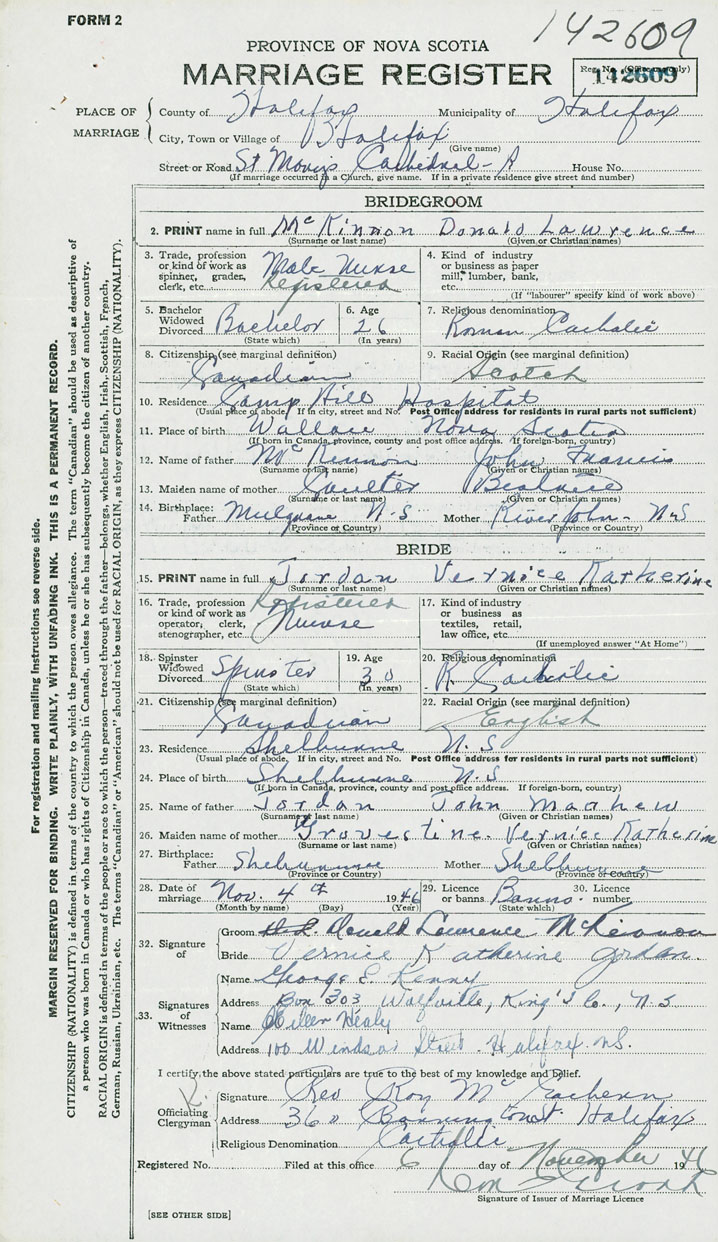 FORM 2
142609
PROVINCE OF NOVA SCOTIA
MARRIAGE REGISTER
Reg. No. (Office use only)
142609
PLACE OF MARRIAGE
County of Halifax Municipality of Halifax
City, Town or Village of Halifax
(Give name)
Street or Road St Mary's Cathedral House No.
(If marriage occurred in a Church, give name. If in a private residence give street and number)
BRIDEGROOM
2. PRINT name in full McKinnon Donald Lawrence
(Surname or last name) (Given or Christian names)
3. Trade, profession or kind of work as spinner, grader, clerk, etc. Male Nurse Registered
4. Kind of industry or business as paper mill, lumber, bank, etc.
(If "labourer" specify kind of work above)
5. Bachelor Widowed Divorced Bachelor (State which)
6. Age 26 (In years)
7. Religious denomination Roman Catholic
8. Citizenship (see marginal definition) Canadian
9. Racial Origin (see marginal definition) Scotch
10. Residence Camp Hill Hospital
(Usual place of abode. If in city, street and No. Post Office address for residents in rural parts not sufficient)
11. Place of birth Wallace Nova Scotia
(If born in Canada, province, county and post office address. If foreign-born, country)
12. Name of father McKinnon John Francis
(Surname or last name) (Given or Christian names)
13. Maiden name of mother Coulter Beatrice
(Surname or last name) (Given or Christian names)
14. Birthplace: Father Mulgrave N.S Mother River John - N.S
(Province or Country) (Province or Country)
BRIDE
15. PRINT name in full Jordan Vernice Katherine
(Surname or last name) (Given or Christian names)
16. Trade, profession or kind of work as operator, clerk, stenographer, etc. Registered Nurse
17. Kind of industry or business as textiles, retail, law office, etc.
(If unemployed answer "At Home")
18. Spinster Widowed Divorced Spinster (State which)
19. Age 30 (In years)
20. Religious denomination R. Catholic
21. Citizenship (see marginal definition) Canadian
22. Racial Origin (see marginal definition) English
23. Residence Shelburne N.S
(Usual place of abode. If in city, street and No. Post Office address for residents in rural parts not sufficient)
24. Place of birth Shelburne N.S
(If born in Canada, province, county and post office address. If foreign-born, country)
25. Name of father Jordan John Mathew
(Surname or last name) (Given or Christian names)
26. Maiden name of mother Vernice Katherine
(Surname or last name) (Given or Christian names)
27. Birthplace: Father Mother
(Province or Country) (Province or Country)
28. Date of marriage Nov. 4th 1946
(Month by name) (Day) (Year)
29. Licence or banns Banns (State which)
30. Licence number
32. Signature of
Groom Donald Lawrence McKinnon
Bride Vernice Katherine Jordan.
33. Signatures of Witnesses
Name George E. Kenny
Address Box 303 Wolfville, King's Co., N.S
Name Healy
Address 100 Windsor Street. Halifax N.S.
I certify, the above stated particulars are true to the best of my knowledge and belief.
Officiating Clergyman
Signature Rev Roy Mc Eachern
Address Halifax
Religious Denomination Catholic
Registered No. Filed at this office 6 day of November 1946
Signature of Issuer of Marriage Licence
[SEE OTHER SIDE]
For registration and mailing instructions see reverse side.
MARGIN RESERVED FOR BINDING. WRITE PLAINLY, WITH UNFADING INK. THIS IS A PERMANENT RECORD.
CITIZENSHIP (NATIONALITY) is defined in terms of the country to which the person owes allegiance. The term "Canadian" should be used as descriptive of
a person who was born in Canada or who has rights of Citizenship in Canada, unless he or she has subsequently become the citizen of another country.
RACIAL ORIGIN is defined in terms of the people or race to which the person—traced through the father—belongs, whether English, Irish, Scottish, French,
German, Russian, Ukrainian, etc. The terms "Canadian" or "American" should not be used for RACIAL ORIGIN, as they express CITIZENSHIP (NATIONALITY).